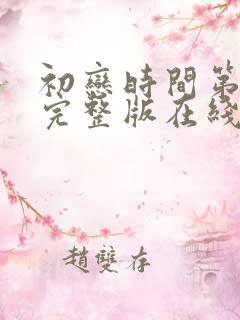 初戀時間第
完整版在綫
趙雙存